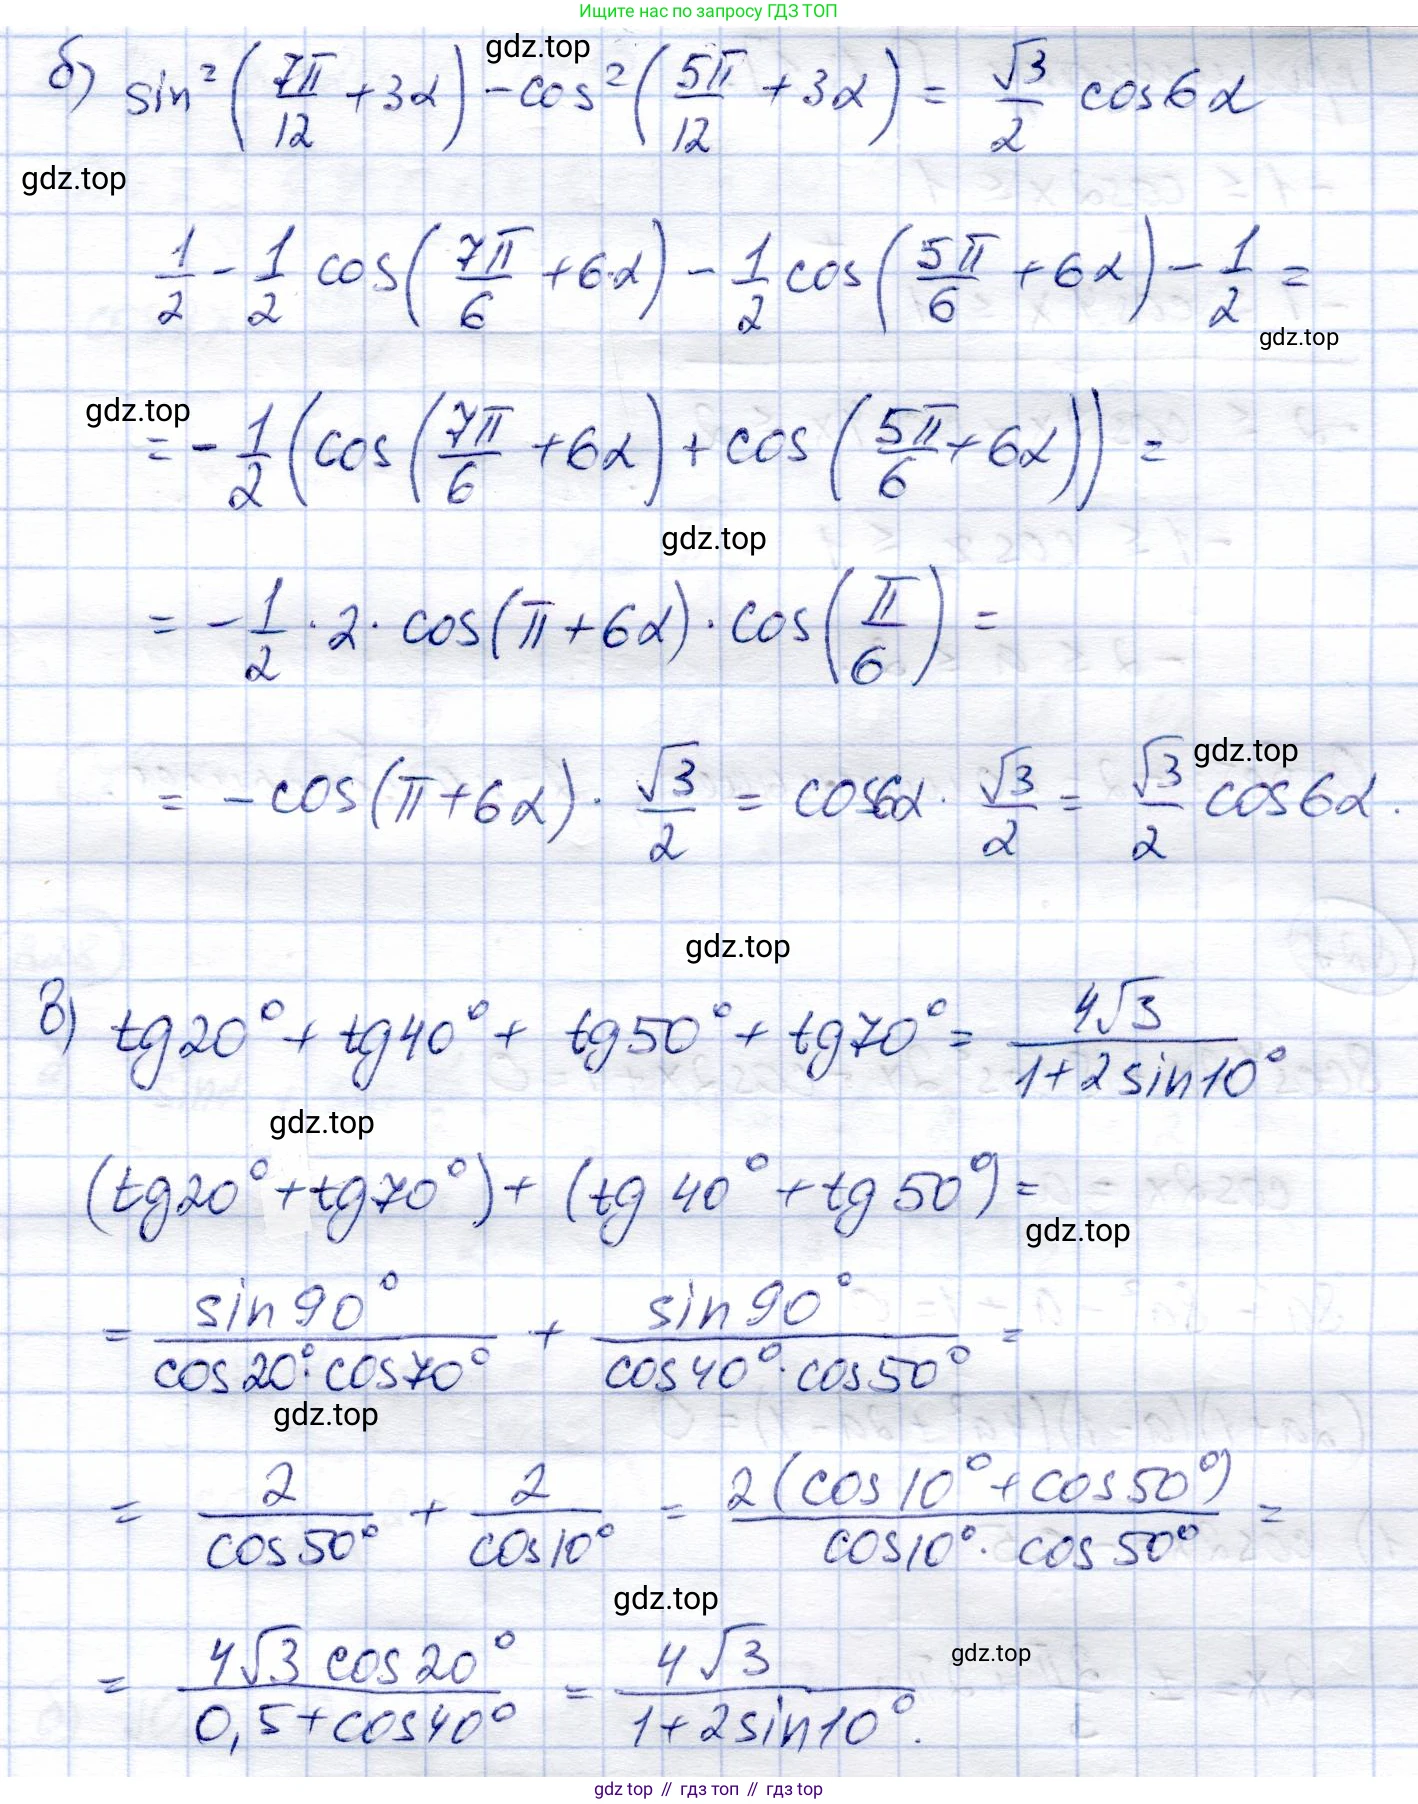 Ищите нас по запросу ГДЗ ТОП
gdz.top
б) sin²(7π/12 + 3α) - cos²(5π/12 + 3α) = √3/2 cos6α
gdz.top
1/2 - 1/2 cos(7π/6 + 6α) - 1/2 cos(5π/6 + 6α) - 1/2 =
gdz.top
gdz.top
= -1/2 (cos(7π/6 + 6α) + cos(5π/6 + 6α)) =
gdz.top
= -1/2 · 2 · cos(π + 6α) · cos(π/6) =
gdz.top
= -cos(π + 6α) · √3/2 = cos6α · √3/2 = √3/2 cos6α.
gdz.top
в) tg20° + tg40° + tg50° + tg70° = 4√3/(1+2sin10°)
gdz.top
(tg20° + tg70°) + (tg40° + tg50°) =
gdz.top
= sin90°/(cos20°·cos70°) + sin90°/(cos40°·cos50°) =
gdz.top
= 2/cos50° + 2/cos10° = 2(cos10° + cos50°)/(cos10°·cos50°) =
gdz.top
gdz.top
= 4√3 cos20°/(0,5+cos40°) = 4√3/(1+2sin10°).
gdz top // гдз топ // гдз top